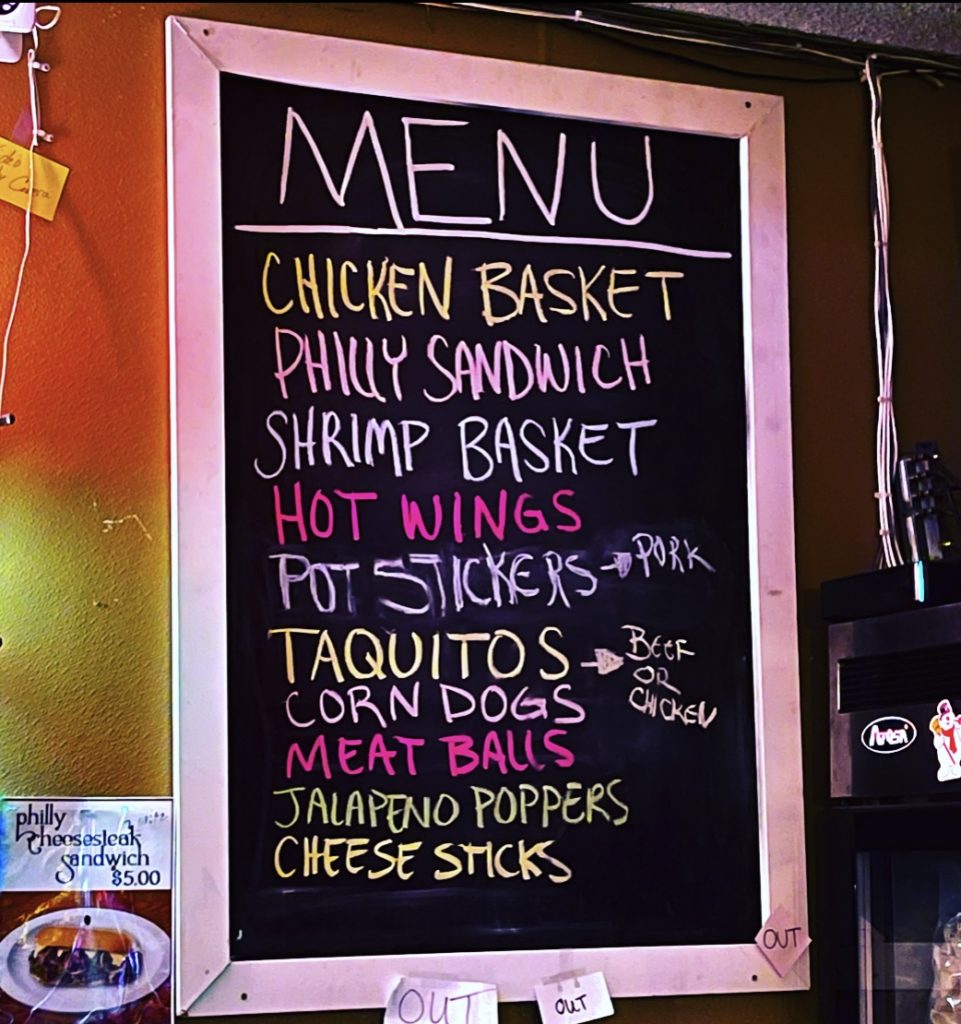 MENU
CHICKEN BASKET
PHILLY SANDWICH
SHRIMP BASKET
HOT WINGS
POT STICKERS → PORK
TAQUITOS → BEEF
OR
CHICKEN
CORN DOGS
MEAT BALLS
JALAPENO POPPERS
CHEESE STICKS
philly
cheesesteak
Sandwich
$5.00
OUT
OUT
OUT